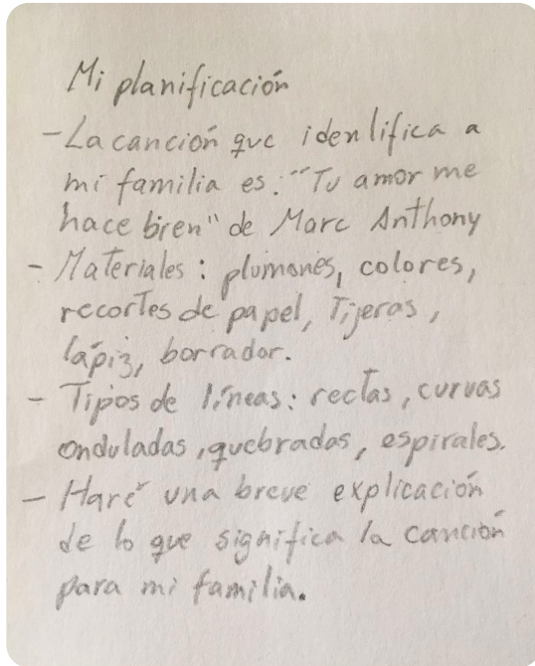 Mi planificación
- La canción que identifica a
mi familia es: "Tu amor me
hace bien" de Marc Anthony
- Materiales: plumones, colores,
recortes de papel, Tijeras,
lápiz, borrador.
- Tipos de líneas: rectas, curvas
onduladas, quebradas, espirales.
- Haré una breve explicación
de lo que significa la canción
para mi familia.